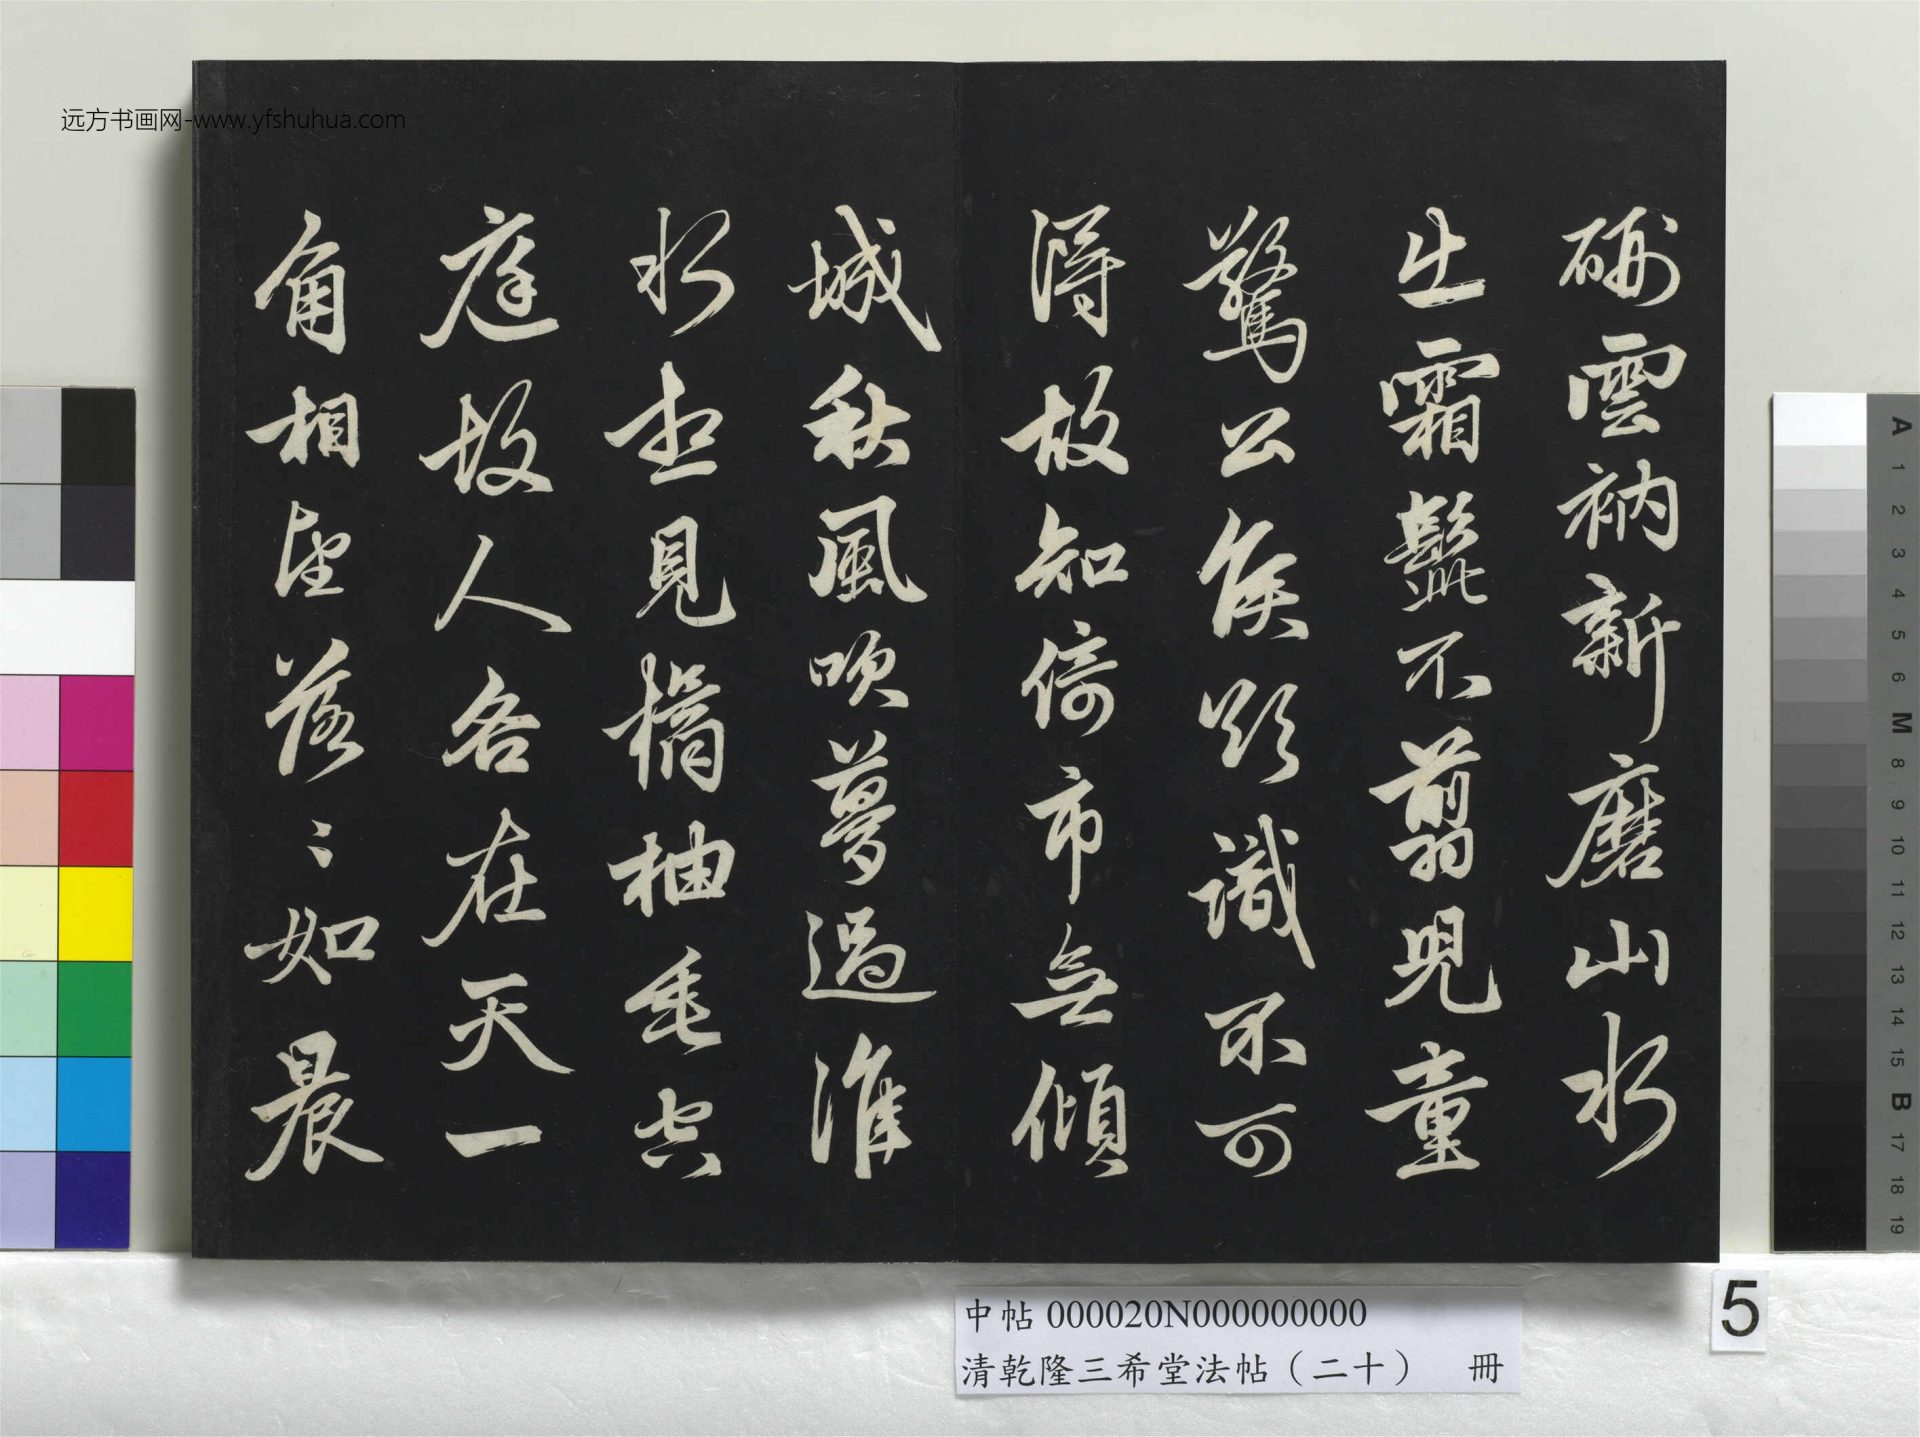 硎雲衲新磨山水
出霜髭不翦兒童
驚公侯欲識不可
得故知倚市無傾
城秋風吹夢過淮
水想見橘柚垂空
庭故人各在天一
角相望落〻如晨
远方书画网-www.yfshuhua.com
中帖 000020N000000000
清乾隆三希堂法帖（二十） 冊
5
A
1
2
3
4
5
6
M
8
9
10
11
12
13
14
15
B
17
18
19